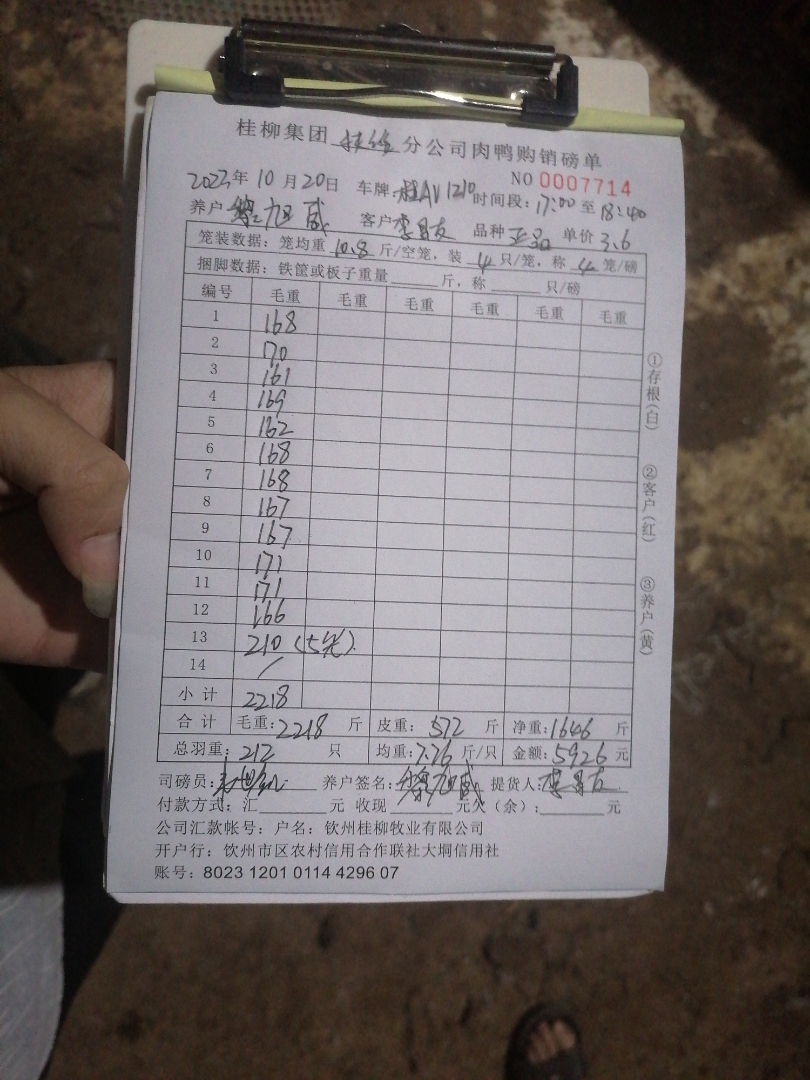 桂柳集团 扶绥 分公司肉鸭购销磅单
NO 0007714
2023年 10月20日 车牌: 桂AV1210 时间段: 17:00 至 18:40
养户 黎旭威 客户 李昌友 品种 正品 单价 3.6
笼装数据: 笼均重 10.8 斤/空笼, 装 4 只/笼, 称 4 笼/磅
捆脚数据: 铁筐或板子重量 斤, 称 只/磅
编号 毛重 毛重 毛重 毛重 毛重 毛重
1 168
2 170
3 161
4 169
5 162
6 168
7 168
8 167
9 167
10 171
11 171
12 166
13 210 (5笼)
14 /
小计 2218
合计 毛重: 2218 斤 皮重: 572 斤 净重: 1646 斤
总羽重: 212 只 均重: 7.76 斤/只 金额: 5926 元
司磅员: 养户签名: 黎旭威 提货人: 李昌友
付款方式: 汇 元 收现 元欠(余): 元
公司汇款帐号: 户名: 钦州桂柳牧业有限公司
开户行: 钦州市区农村信用合作联社大垌信用社
账号: 8023 1201 0114 4296 07
①存根(白)
②客户(红)
③养户(黄)